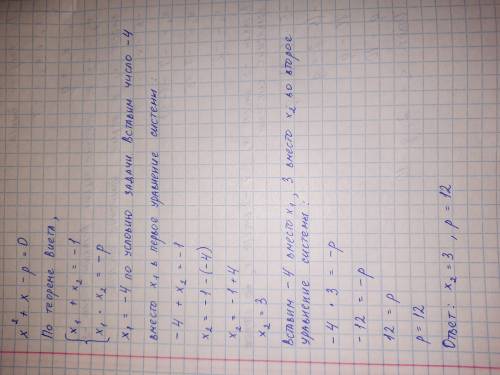 x² + x - p = 0
По теореме Виета,
{ x₁ + x₂ = -1
{ x₁ · x₂ = -p
x₁ = -4 по условию задачи вставим число -4
вместо x₁ в первое уравнение системы:
-4 + x₂ = -1
x₂ = -1 - (-4)
x₂ = -1 + 4
x₂ = 3
Вставим -4 вместо x₁, 3 вместо x₂ во второе
уравнение системы:
-4 · 3 = -p
-12 = -p
12 = p
p = 12
Ответ: x₂ = 3, p = 12